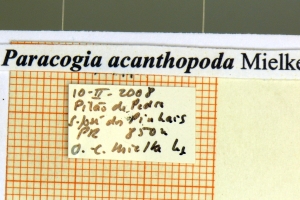 Paracogia acanthopoda Mielke
10-II-2008
Pilão de Pedra
S. José dos Pinhais
PR 850m
O.-C. Mielke leg